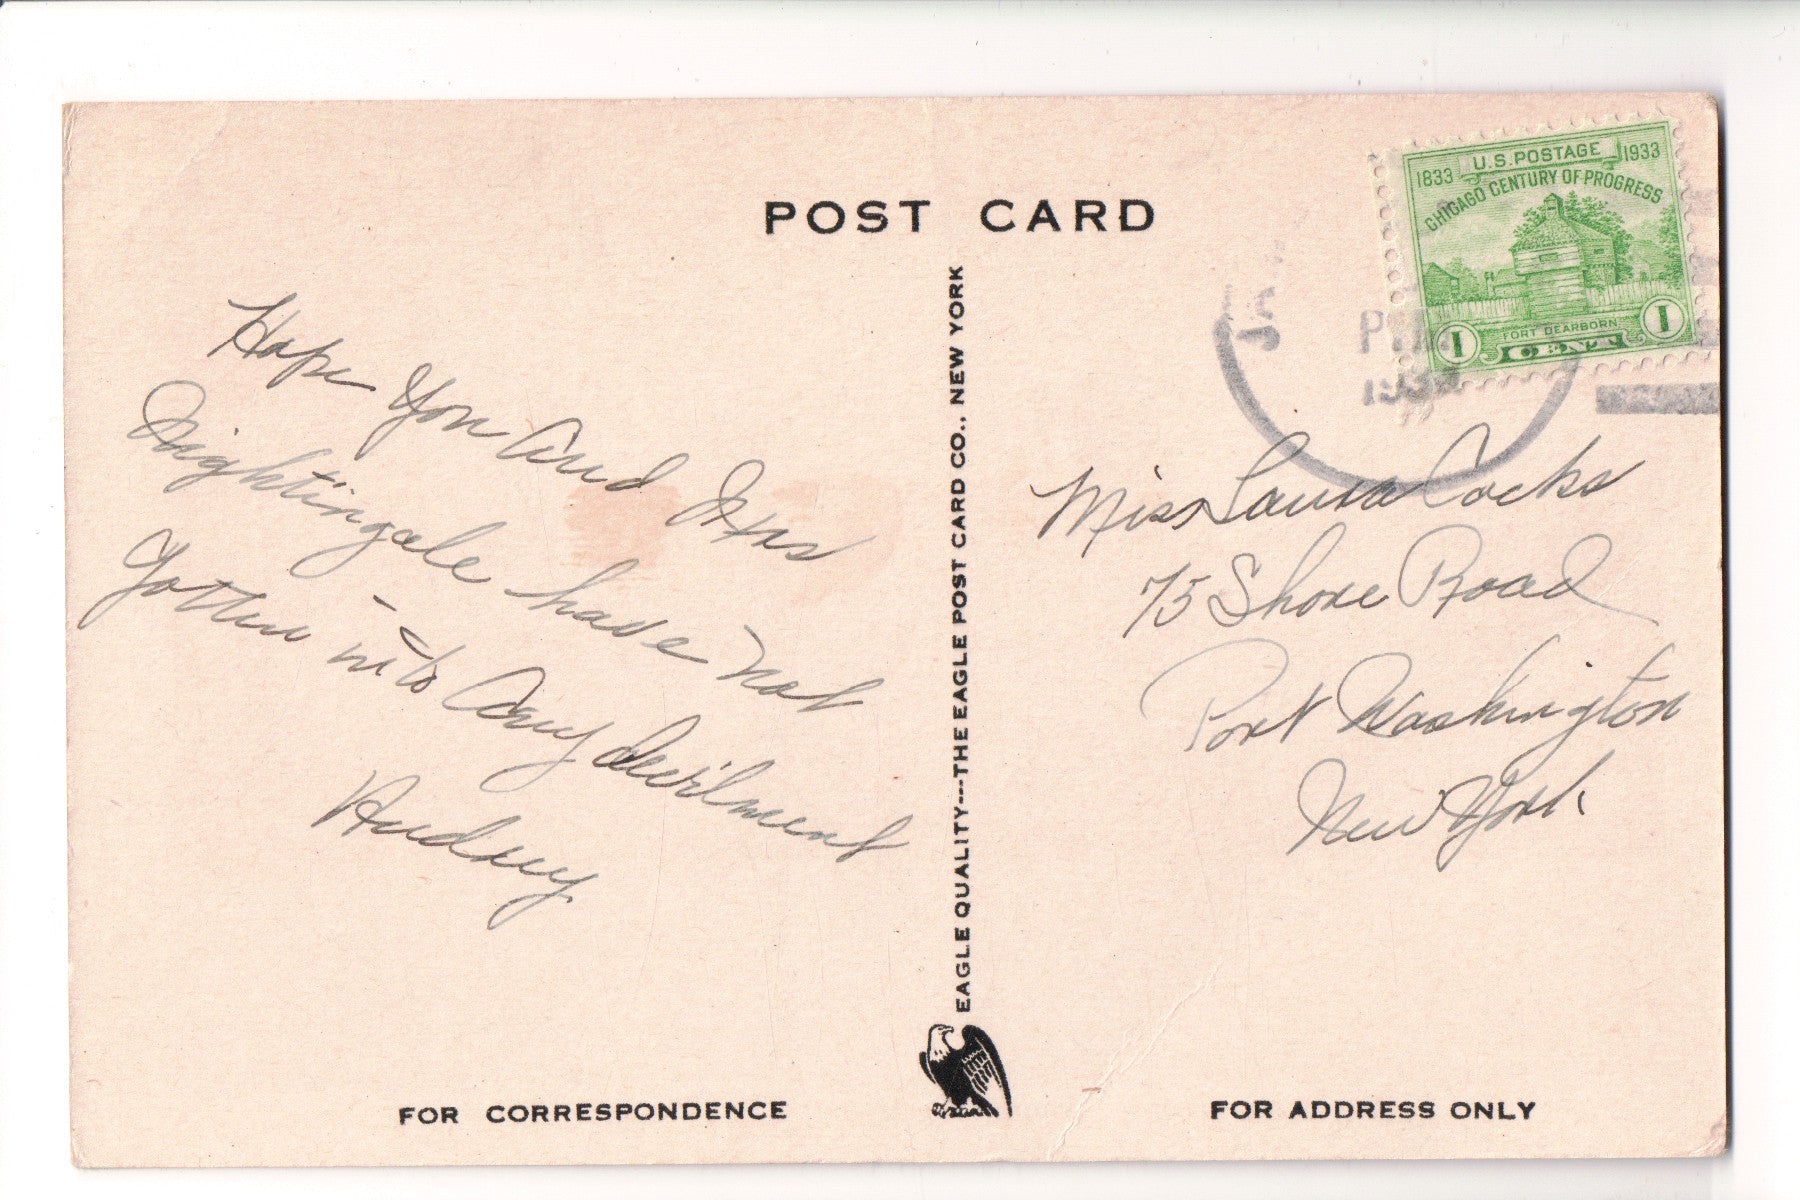 POST CARD
U.S. POSTAGE
1833 1933
CHICAGO CENTURY OF PROGRESS
FORT DEARBORN
1 CENT 1
P.M.
Hope You and Mrs
Nightingale have not
Gotten into Any devilment
Audrey
EAGLE QUALITY---THE EAGLE POST CARD CO., NEW YORK
Miss Laura Cocks
75 Shore Road
Port Washington
New York
FOR CORRESPONDENCE
FOR ADDRESS ONLY